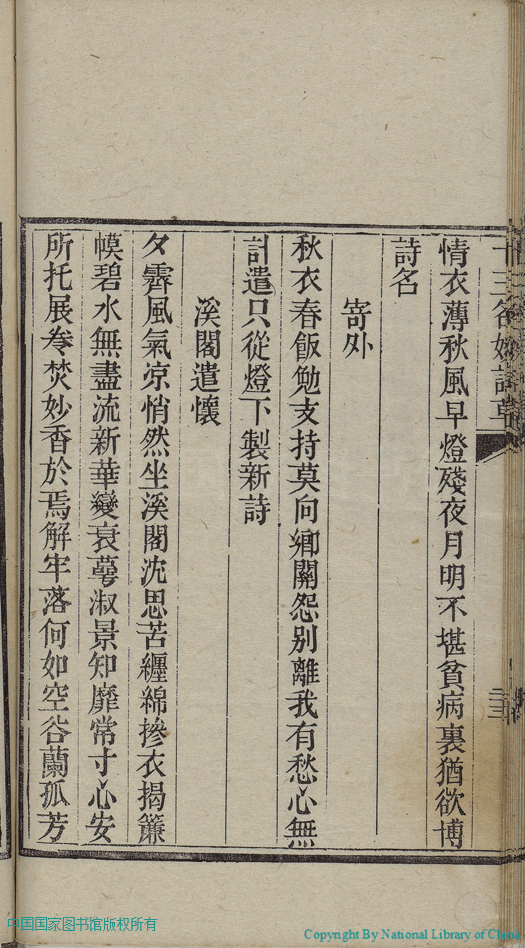 情衣薄秋風早燈殘夜月明不堪貧病裏猶欲博
詩名
寄外
秋衣春飯勉支持莫向鄉關怨別離我有愁心無
計遣只從燈下製新詩
溪閣遣懷
夕霽風氣凉悄然坐溪閣沈思苦纏綿摻衣揭簾
幙碧水無盡流新華變衰蕚淑景知靡常寸心安
所托展卷焚妙香於焉解牢落何如空谷蘭孤芳
中国国家图书馆版权所有
Copyright By National Library of China